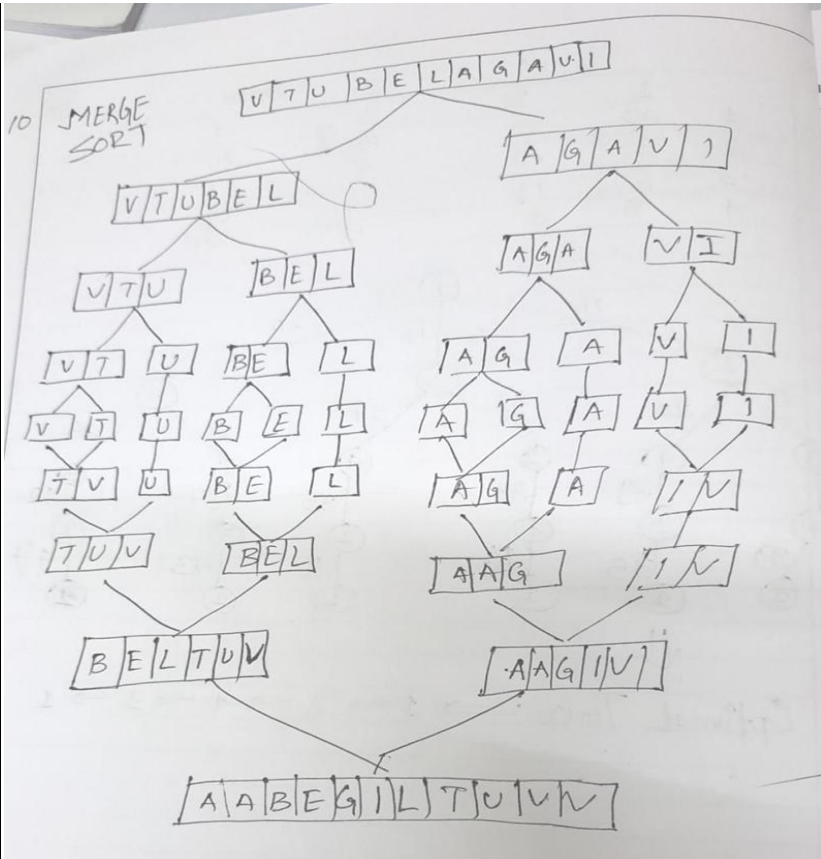 V T U B E L A G A V I
10 MERGE
SORT
A G A V I
V T U B E L
A G A V I
V T U B E L
V T U B E L A G A V I
V T U B E L A G A V I
T V U B E L A G A I V
T U V B E L A A G I V
B E L T U V A A G I V
A A B E G I L T U V V